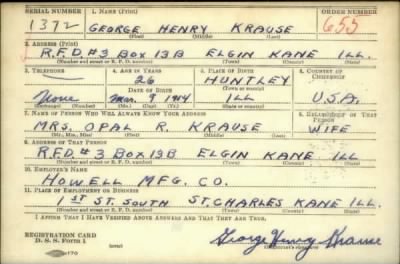 SERIAL NUMBER 1. NAME (Print) ORDER NUMBER
1372 GEORGE HENRY KRAUSE 653
(First) (Middle) (Last)
2. ADDRESS (Print)
R.F.D #3 Box 13B ELGIN KANE ILL.
(Number and street or R. F. D. number) (Town) (County) (State)
3. TELEPHONE 4. AGE IN YEARS 5. PLACE OF BIRTH 6. COUNTRY OF CITIZENSHIP
26 HUNTLEY
DATE OF BIRTH (Town or county)
None Mar. 9 1914 ILL U.S.A.
(Exchange) (Number) (Mo.) (Day) (Yr.) (State or country)
7. NAME OF PERSON WHO WILL ALWAYS KNOW YOUR ADDRESS 8. RELATIONSHIP OF THAT PERSON
MRS. OPAL R. KRAUSE WIFE
(Mr., Mrs., Miss) (First) (Middle) (Last)
9. ADDRESS OF THAT PERSON
R.F.D #3 BOX 13B ELGIN KANE ILL
(Number and street or R. F. D. number) (Town) (County) (State)
10. EMPLOYER'S NAME
HOWELL MFG. CO.
11. PLACE OF EMPLOYMENT OR BUSINESS
1ST ST. SOUTH ST. CHARLES KANE ILL.
(Number and street or R. F. D. number) (Town) (County) (State)
I AFFIRM THAT I HAVE VERIFIED ABOVE ANSWERS AND THAT THEY ARE TRUE.
REGISTRATION CARD
D. S. S. FORM 1 (over) George Henry Krause
(Registrant's signature)